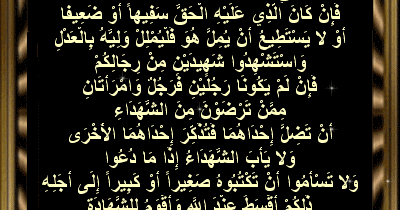 فَإِنْ كَانَ الَّذِي عَلَيْهِ الْحَقُّ سَفِيهاً أَوْ ضَعِيفًا
أَوْ لا يَسْتَطِيعُ أَنْ يُمِلَّ هُوَ فَلْيُمْلِلْ وَلِيُّهُ بِالْعَدْلِ
وَاسْتَشْهِدُوا شَهِيدَيْنِ مِنْ رِجَالِكُمْ
فَإِنْ لَمْ يَكُونَا رَجُلَيْنِ فَرَجُلٌ وَامْرَأَتَانِ
مِمَّنْ تَرْضَوْنَ مِنَ الشُّهَدَاءِ
أَنْ تَضِلَّ إِحْدَاهُمَا فَتُذَكِّرَ إِحْدَاهُمَا الأُخْرَى
وَلا يَأْبَ الشُّهَدَاءُ إِذَا مَا دُعُوا
وَلا تَسْأَمُوا أَنْ تَكْتُبُوهُ صَغِيراً أَوْ كَبِيراً إِلَى أَجَلِهِ
ذَلِكُمْ أَقْسَطُ عِنْدَ اللَّهِ وَأَقْوَمُ لِلشَّهَادَةِ